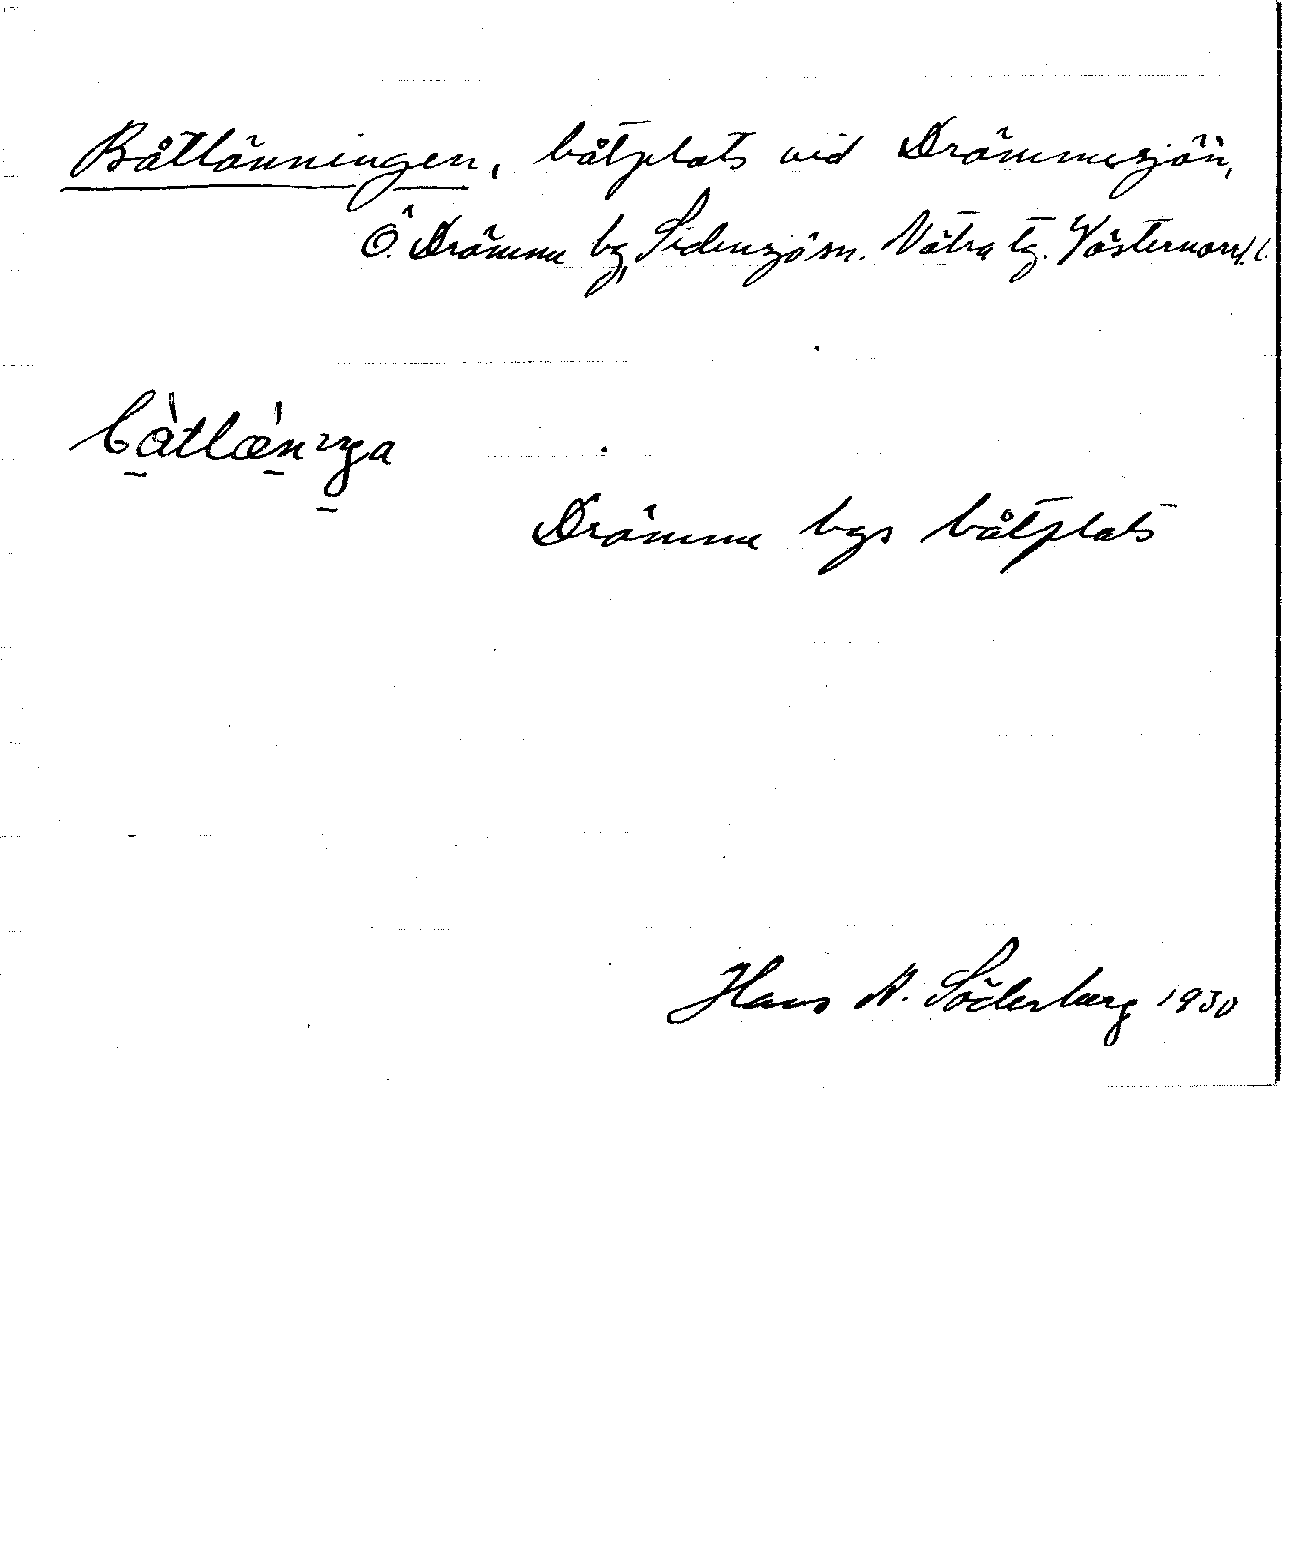 Båtlänningen, båtplats vid Drömmesjön,
Ö. Drömme by, Sidensjö sn. Nätra tg. Västernorrl. l.
Drömme bys båtplats
Hans A. Söderberg 1930